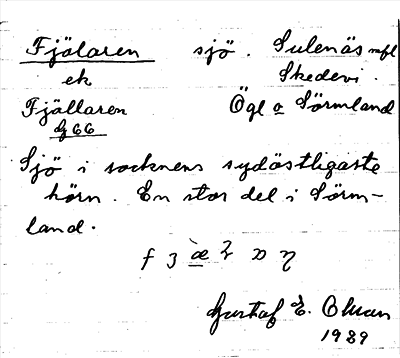 Fjälaren sjö. Sulenäs mfl
ek Skedevi.
Fjällaren Ögl o Sörmland
G66
Sjö i socknens sydöstligaste
hörn. En stor del i Sörm-
land.
Gustaf E. Ohman
1929